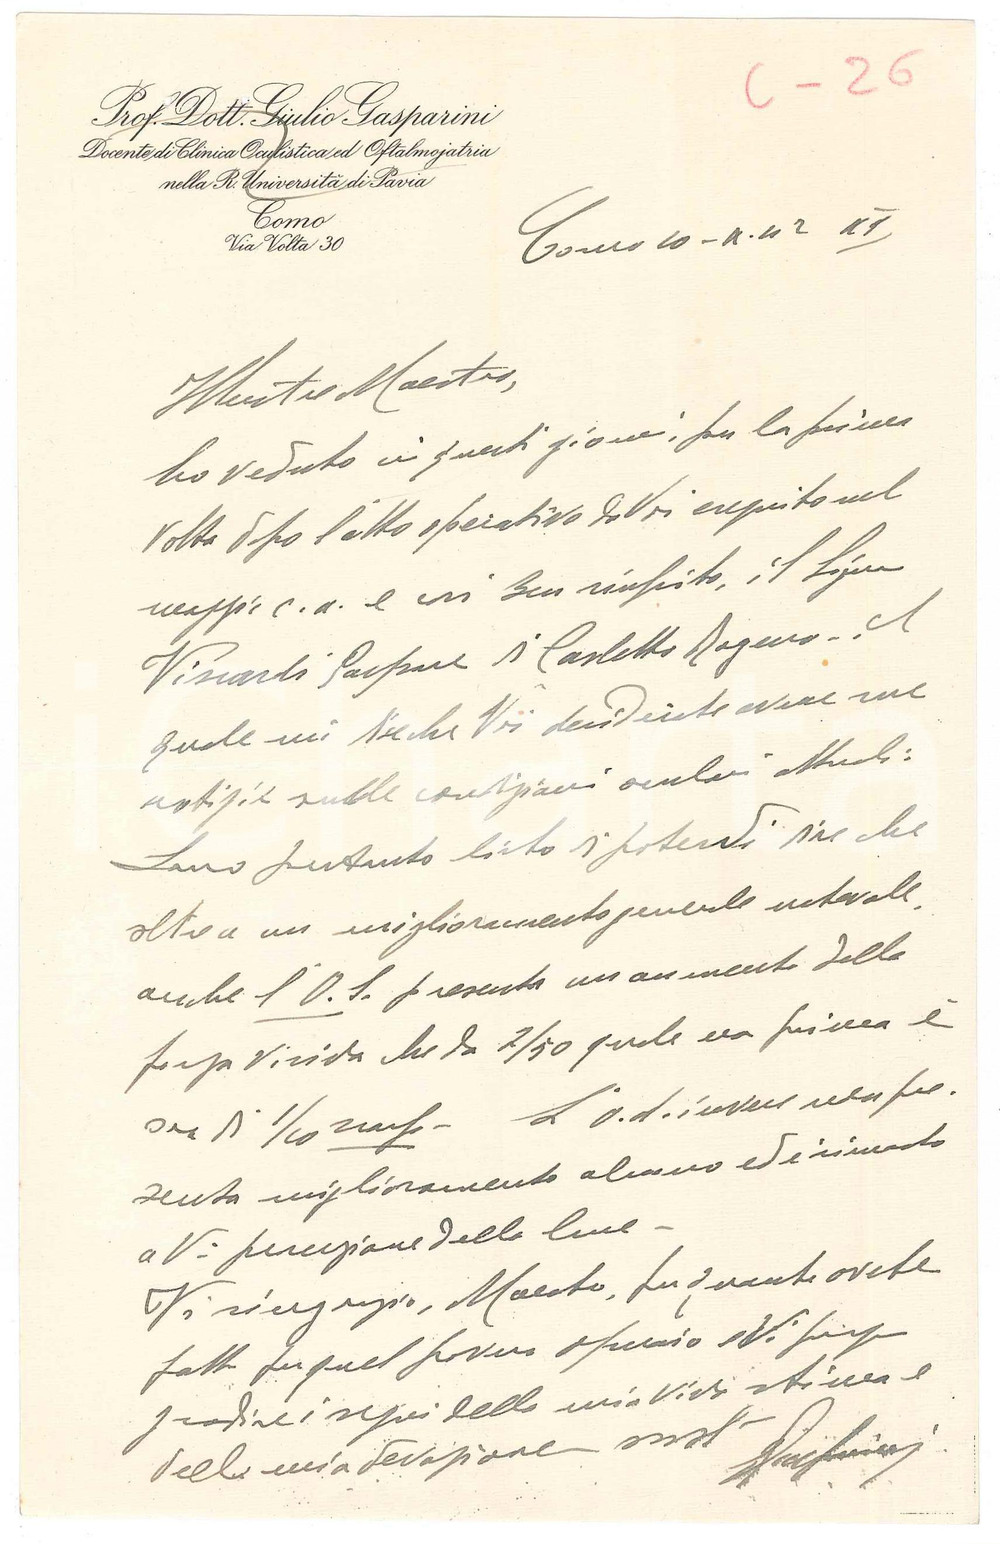 C - 26
Prof. Dott. Giulio Gasparini
Docente di Clinica Oculistica ed Oftalmojatria
nella R. Università di Pavia
Como
Via Volta 30
Como 10 - XI
Illustre Maestro,
ho veduto in questi giorni, per la prima
volta dopo l'atto operativo da Voi eseguito nel
maggio c. a. e così ben riuscito, il Signor
Gaspare di Carletto il
quale mi dice che Voi desiderate avere mie
notizie sulle condizioni oculari attuali:
Sono pertanto lieto di poterVi dire che
oltre a un miglioramento generale notevole,
anche l'O. S. presenta un aumento della
forza visiva che da 2/50 quale era prima è
ora di 1/10 scarso - L'o. d. invece non pre-
senta miglioramento alcuno ed è rimasto
a V= percezione della luce -
Vi ringrazio, Maestro, per quanto avete
fatto per quel povero operaio e Vi prego
gradire i segni della mia viva stima e
della mia devozione
Gasparini